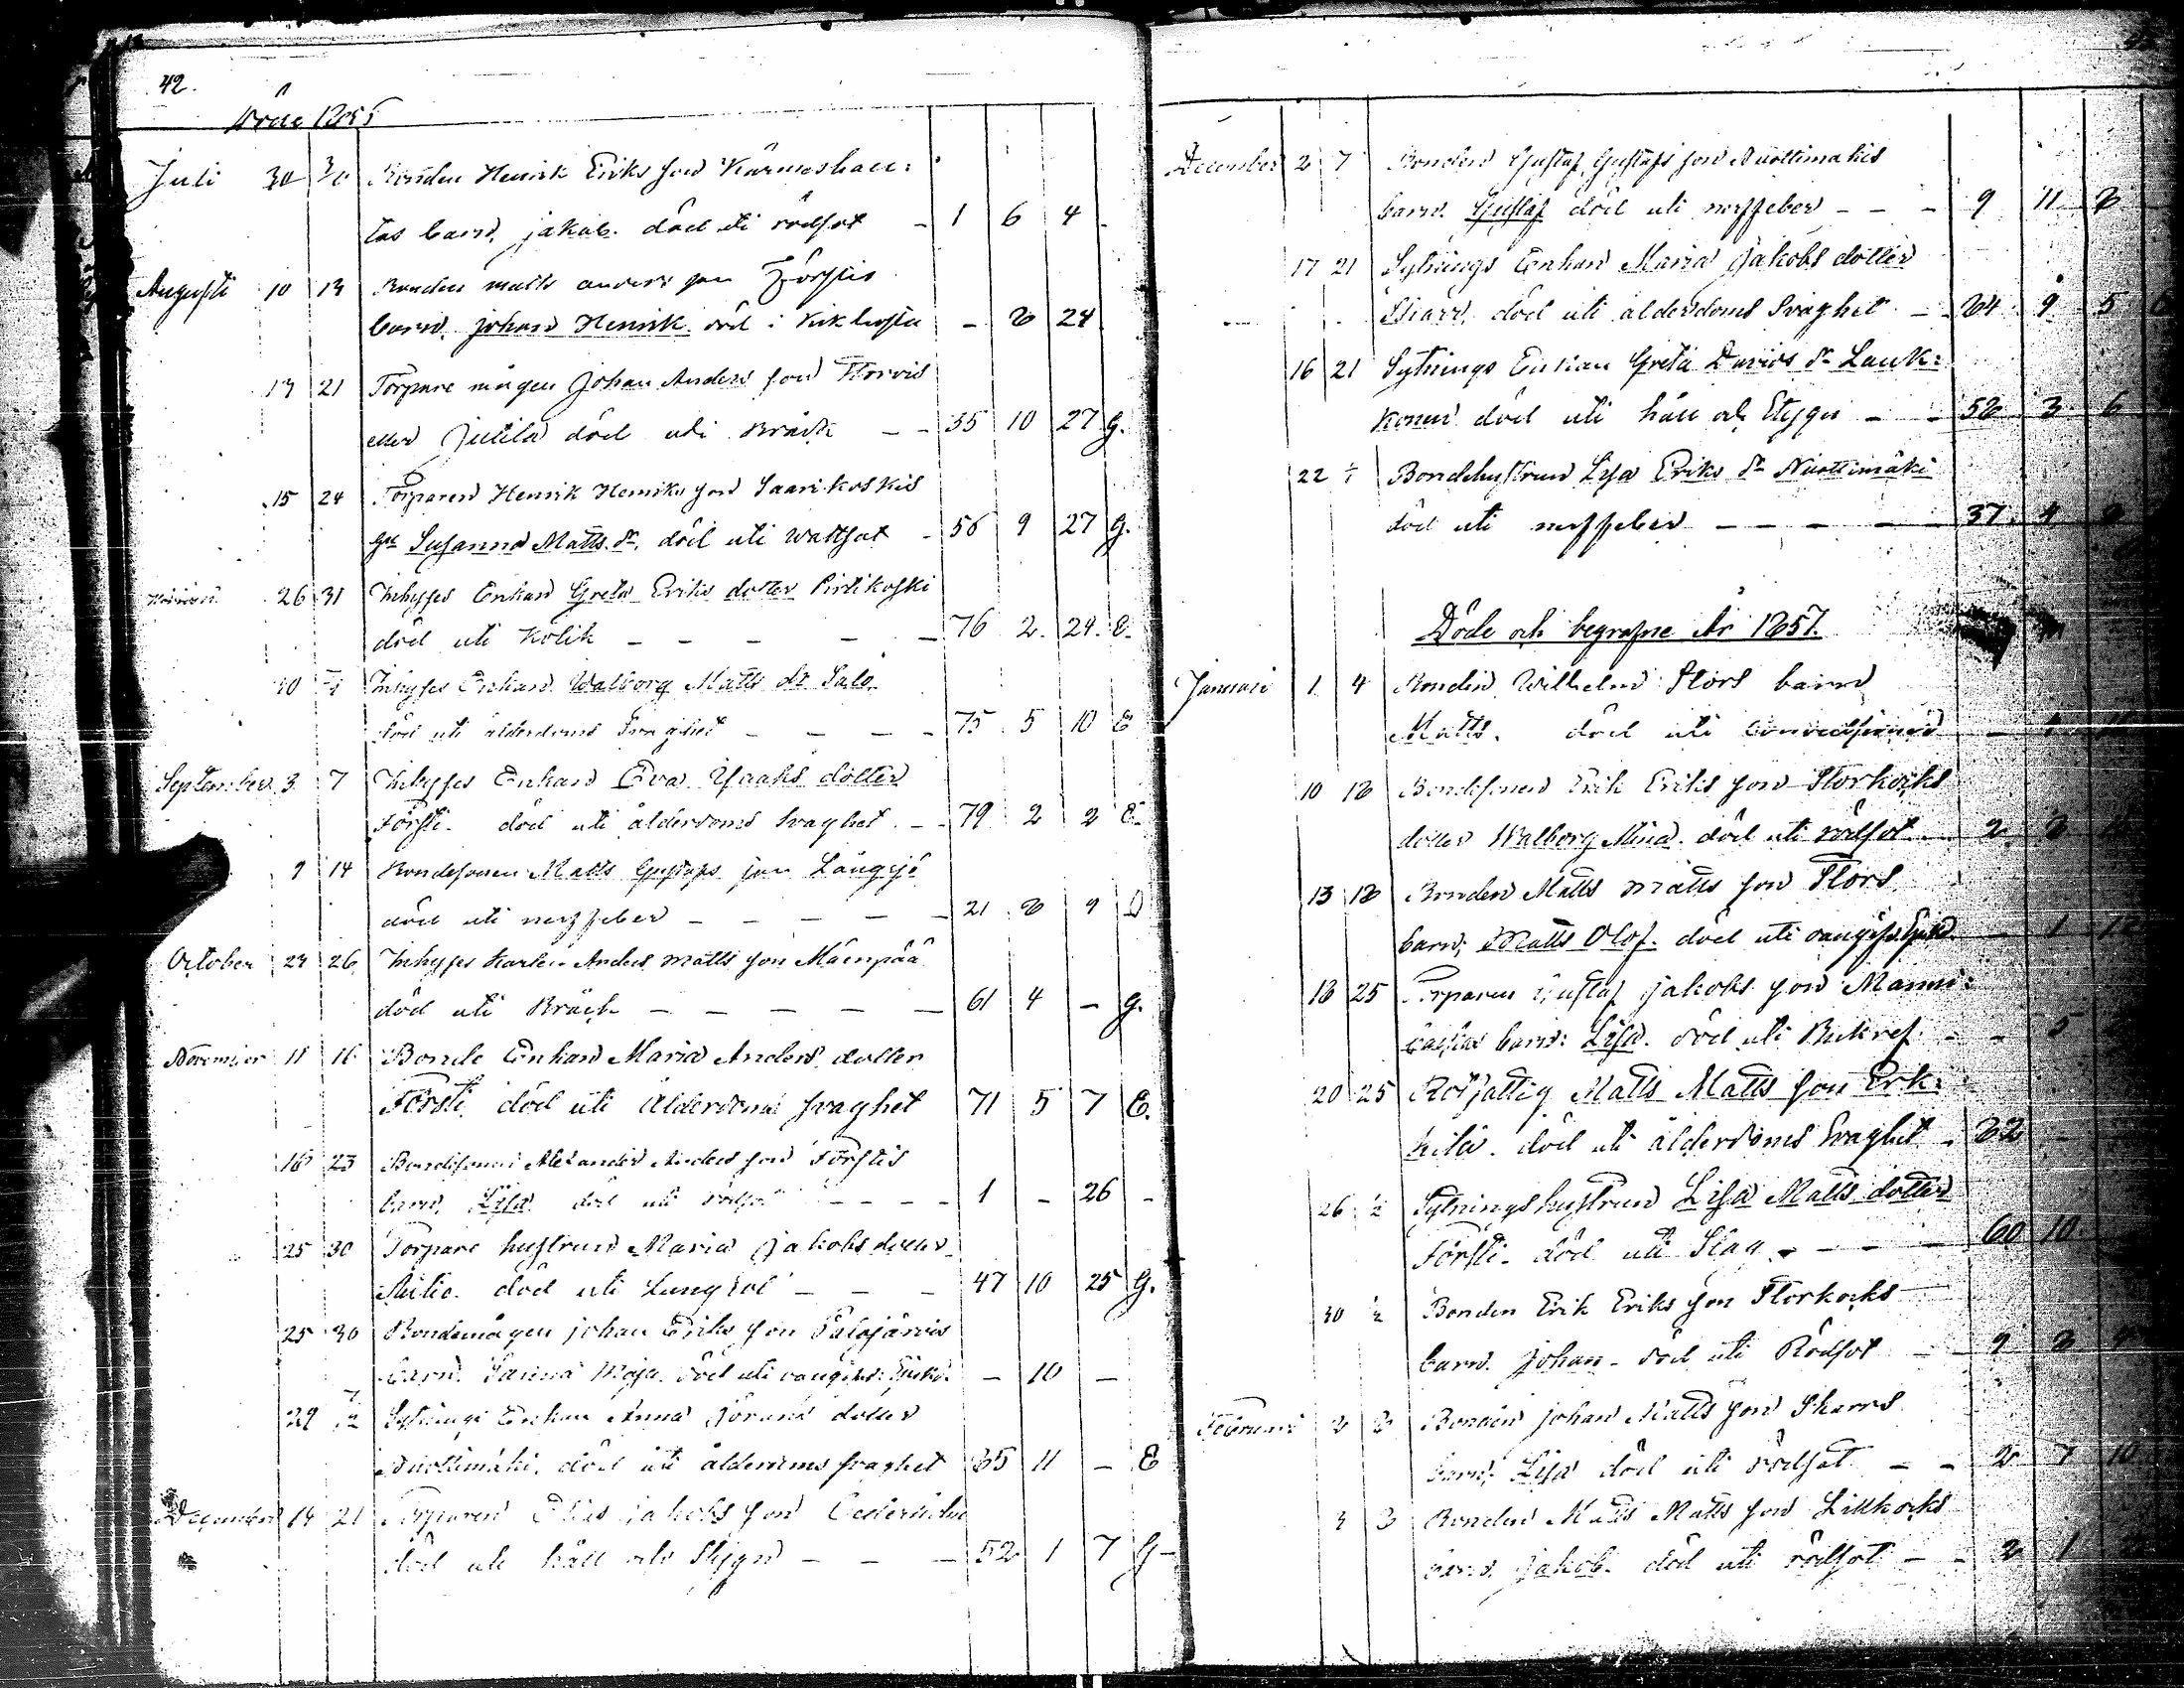 42.
Döde 1855
Juli 30 Bonden Henrik Eriks son
tas barn, Jakob. död uti rödsot - 1 6 4 -
Augusti 10 13 Bonden Matts Anders son Förstis
barn. Johan Henrik. död i Kikhosta - 8 24
13 21 Torpare mågen Johan Anders son Storvis
eller Jutila död uti Bråck - - 35 10 27 G.
15 24 Torparen Henrik Henriks son Saarikoskis
Susanna Matts dr. död uti Wattsot - 56 9 27 G.
26 31 Inhyses Enkan Greta Eriks dotter Pirtikoski
död uti Kolik - - - - - 76 2. 24. E.
Inhyses Enkan Walborg Matts dr Salo.
död uti ålderdoms Svaghet - - - - 75 5 10 E
September 3 7 Inhyses Enkan Eva Isaaks dotter
Försti. död uti ålderdoms Svaghet. - - 79 2 2 E.
9 14 Bondesonen Matts Gustafs son Långsjö
död uti nerffeber - - - - - 21 8 9 D
October 24 26 Inhyses Karlen Anders Matts son Mäenpää
död uti Bråck - - - - - 61 4 - G.
November 11 16 Bonde Enkan Maria Anders dotter
Försti. död uti Ålderdoms svaghet 71 5 7 E.
18 23 Bondesonen Alexander Anders son Förstis
barn, Lisa. död uti rödsot - - - - 1 - 26 -
25 30 Torpare hustrun Maria Jakobs dotter
Autio. död uti Lungsot - - - 47 10 25 G.
25 30 Bondemågen Johan Eriks son Salojärvis
barn. Sanna Maja. död uti - 10 -
29 Sytnings Enkan Anna Jörans dotter
Nuottimäki. död uti ålderdoms svaghet 85 11 - E
December 14 21 Torparen Elias Jakobs son
död uti håll och Stygn - - - 52 1 7 G -
December 2 7 Bonden Gustaf Gustafs son Nuottimäkis
barn. Gustaf död uti nerffeber - - - 9 11 8
17 21 Sytnings Enkan Maria Jakobs dotter
död uti ålderdoms Svaghet - - 84 9 5
16 21 Sytnings Enkan Greta Davids dr Lauk=
konen död uti håll och Stygn - - 58 3 6
22 Bondehustrun Lisa Eriks dr Nuottimäki
död uti nerffeber - - - - - 37. 4 8
Döde och begrafne År 1857.
Januari 1 4 Bonden Wilhelm Stors barn
Matts. död uti
10 18 Bondesonen Erik Eriks son Storkocks
dotter Walborg Mina. död uti rödsot. 2 8
13 18 Bonden Matts Matts son Stors
barn; Matts Olof. död uti - 1
18 25 Torparen Gustaf Jakobs son
barn: Lisa. död uti Bukref. - - 5
20 25 Rotfattig Matts Matts son Erk=
kilä. död uti ålderdoms Svaghet. 82 -
26 Sytnings hustrun Lisa Matts dotter
Försti. död uti Slag - - - - 60 10.
30 Bonden Erik Eriks son Storkocks
barn. Johan - död uti Rödsot - -
Februari 2 8 Bonden Johan Matts son Skarrs
barn; Lisa död uti rödsot - - 2 7 10
3 8 Bonden Matts Matts son Lillkocks
barn. Jakob. död uti rödsot - - 2 1